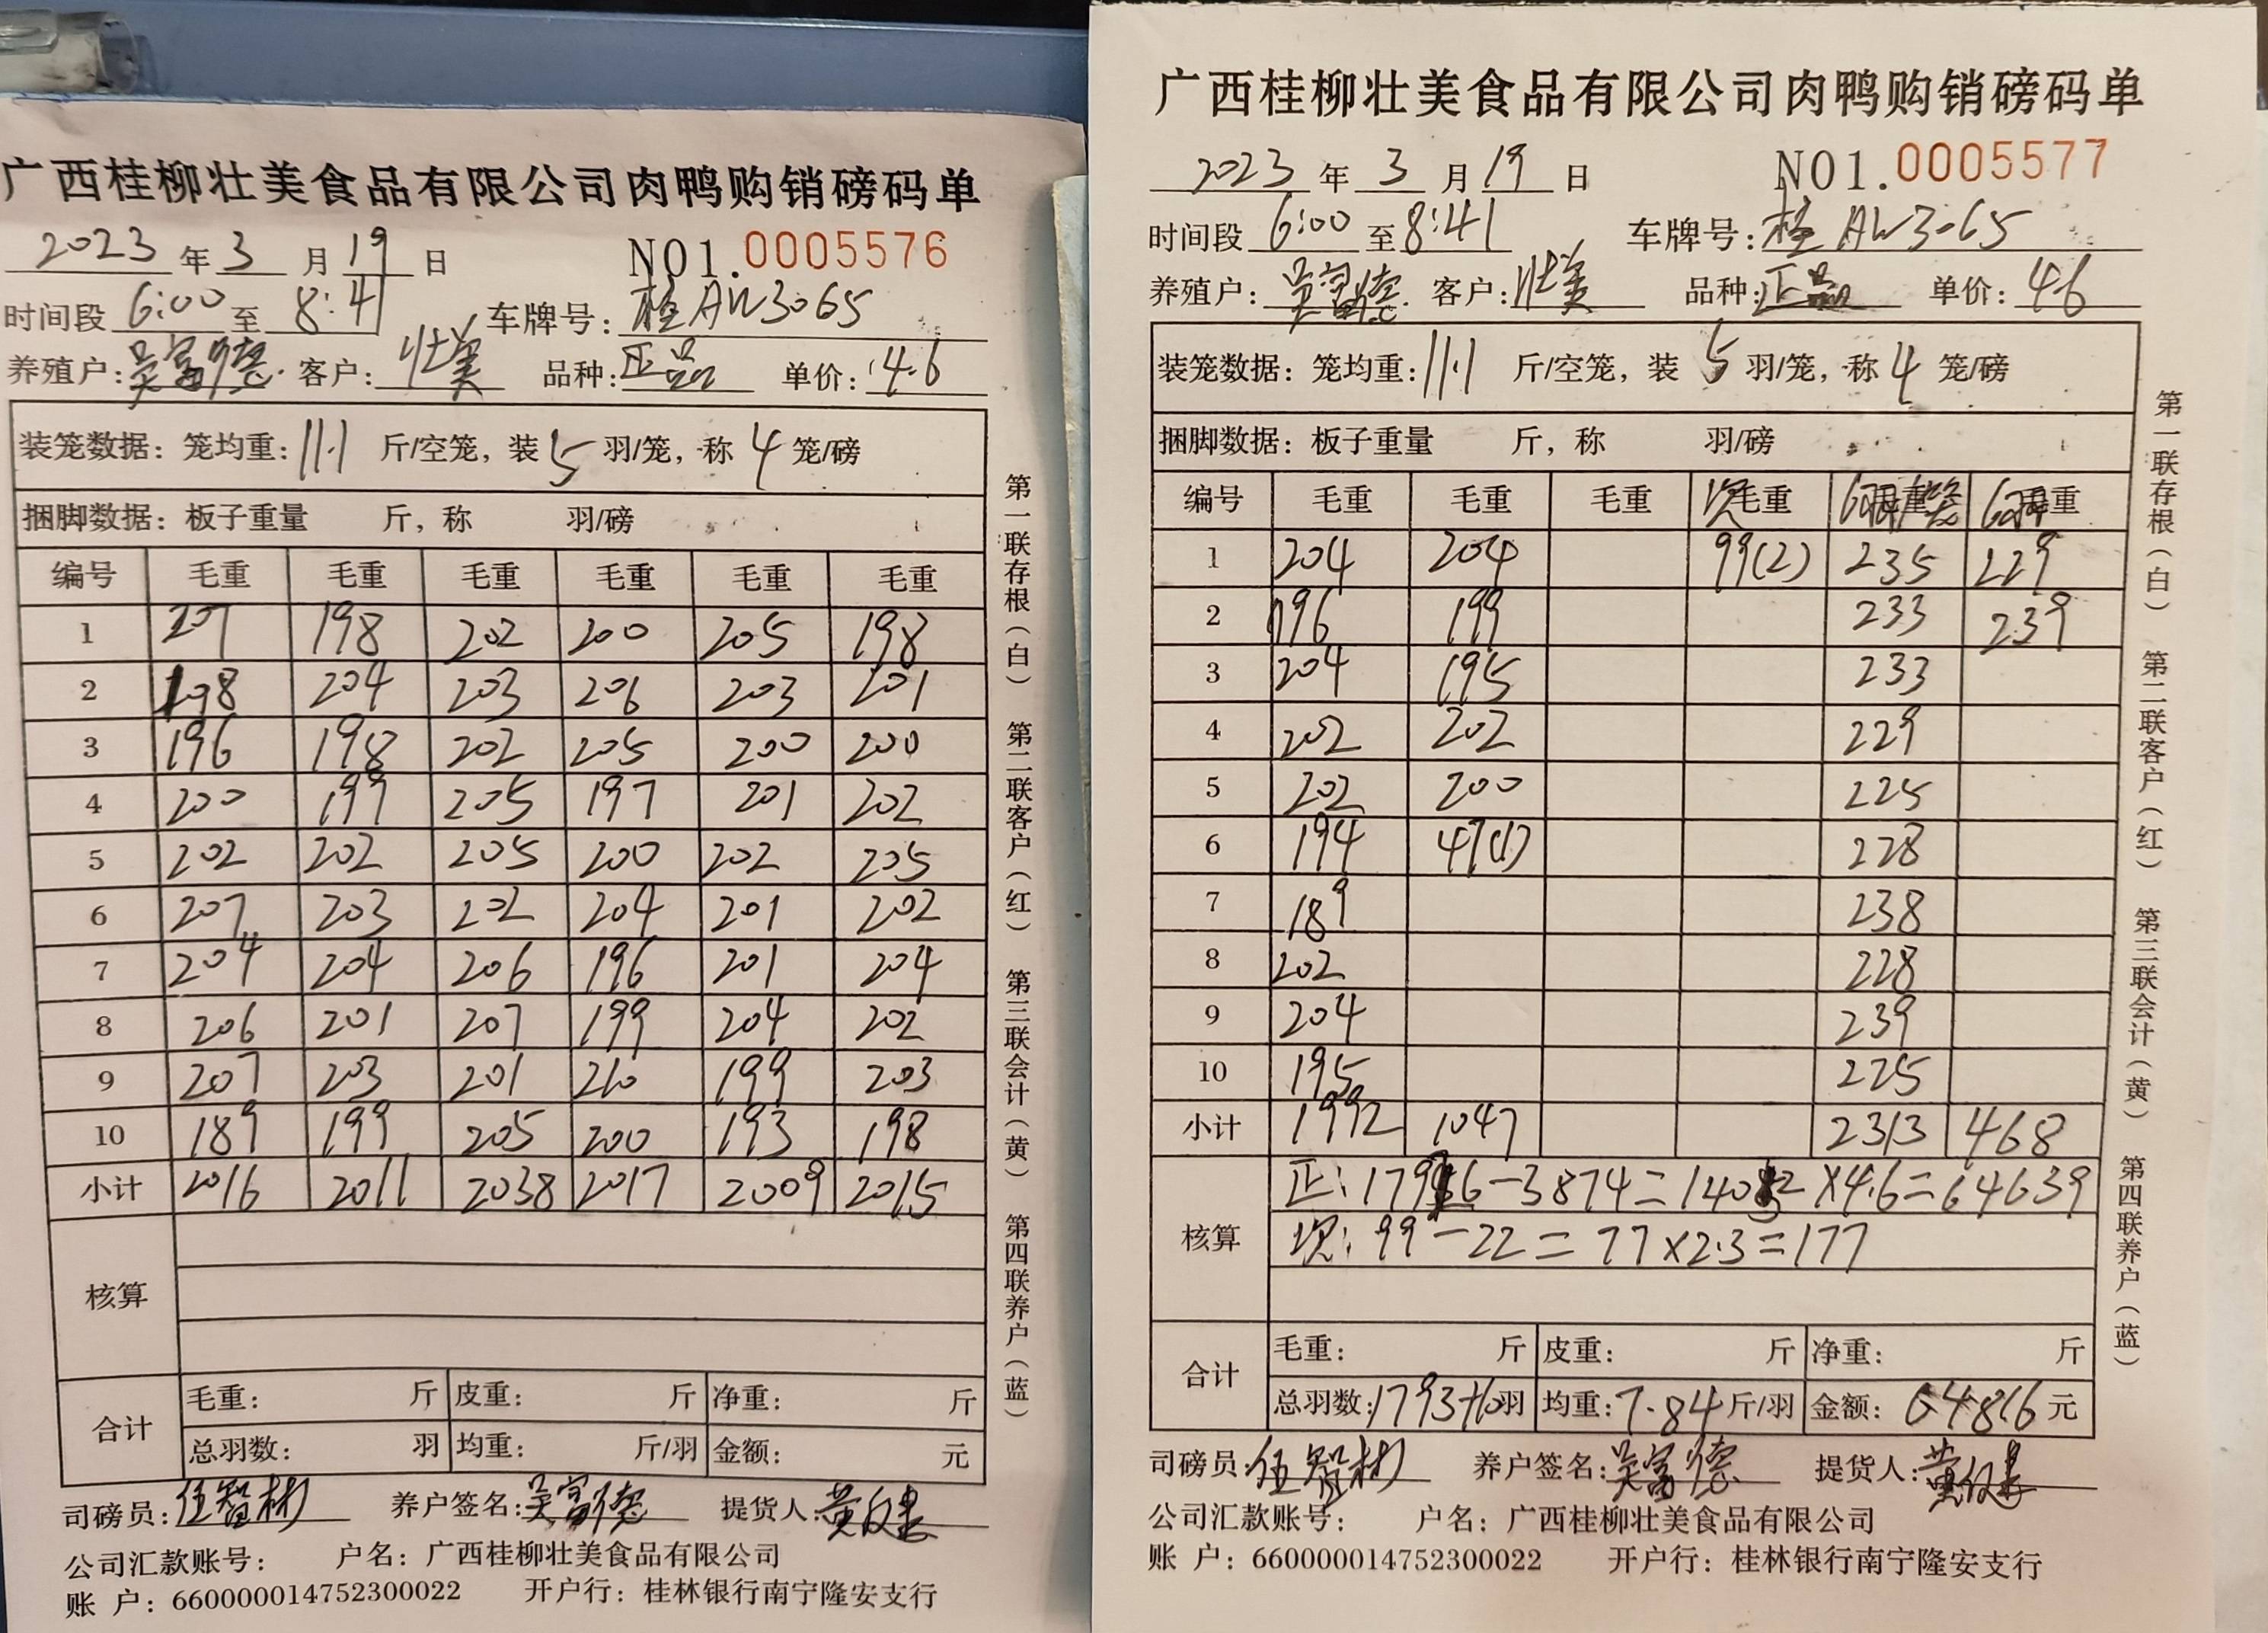 广西桂柳壮美食品有限公司肉鸭购销磅码单
2023 年 3 月 19 日 NO1.0005576
时间段 6:00 至 8:41 车牌号: 桂AW3065
养殖户: 吴富德 客户: 壮美 品种: 正品 单价: 4.6
装笼数据: 笼均重: 11.1 斤/空笼, 装 5 羽/笼, 称 4 笼/磅
捆脚数据: 板子重量 斤, 称 羽/磅
编号 毛重 毛重 毛重 毛重 毛重 毛重
1 207 198 202 200 205 198
2 198 204 203 206 203 201
3 196 198 202 205 200 200
4 200 199 205 197 201 202
5 202 202 205 200 202 205
6 207 203 202 204 201 202
7 204 204 206 196 201 204
8 206 201 207 199 204 202
9 207 203 201 210 199 203
10 189 199 205 200 193 198
小计 2016 2011 2038 2017 2009 2015
核算
合计 毛重: 斤 皮重: 斤 净重: 斤
总羽数: 羽 均重: 斤/羽 金额: 元
司磅员: 伍智彬 养户签名: 吴富德 提货人: 黄
公司汇款账号: 户名: 广西桂柳壮美食品有限公司
账 户: 660000014752300022 开户行: 桂林银行南宁隆安支行
第一联存根(白) 第二联客户(红) 第三联会计(黄) 第四联养户(蓝)
广西桂柳壮美食品有限公司肉鸭购销磅码单
2023 年 3 月 19 日 NO1.0005577
时间段 6:00 至 8:41 车牌号: 桂AW3065
养殖户: 吴富德 客户: 壮美 品种: 正品 单价: 4.6
装笼数据: 笼均重: 11.1 斤/空笼, 装 5 羽/笼, 称 4 笼/磅
捆脚数据: 板子重量 斤, 称 羽/磅
编号 毛重 毛重 毛重 次毛重 6羽/笼 6羽重
1 204 204 99(2) 235 229
2 196 199 233 239
3 204 195 233
4 202 202 229
5 202 200 225
6 194 47(1) 228
7 189 238
8 202 228
9 204 239
10 195 225
小计 1992 1047 2313 468
核算 正: 17926-3874=14052×4.6=64639
次: 99-22=77×2.3=177
合计 毛重: 斤 皮重: 斤 净重: 斤
总羽数: 1793+10羽 均重: 7.84 斤/羽 金额: 64816 元
司磅员: 伍智彬 养户签名: 吴富德 提货人: 黄
公司汇款账号: 户名: 广西桂柳壮美食品有限公司
账 户: 660000014752300022 开户行: 桂林银行南宁隆安支行
第一联存根(白) 第二联客户(红) 第三联会计(黄) 第四联养户(蓝)